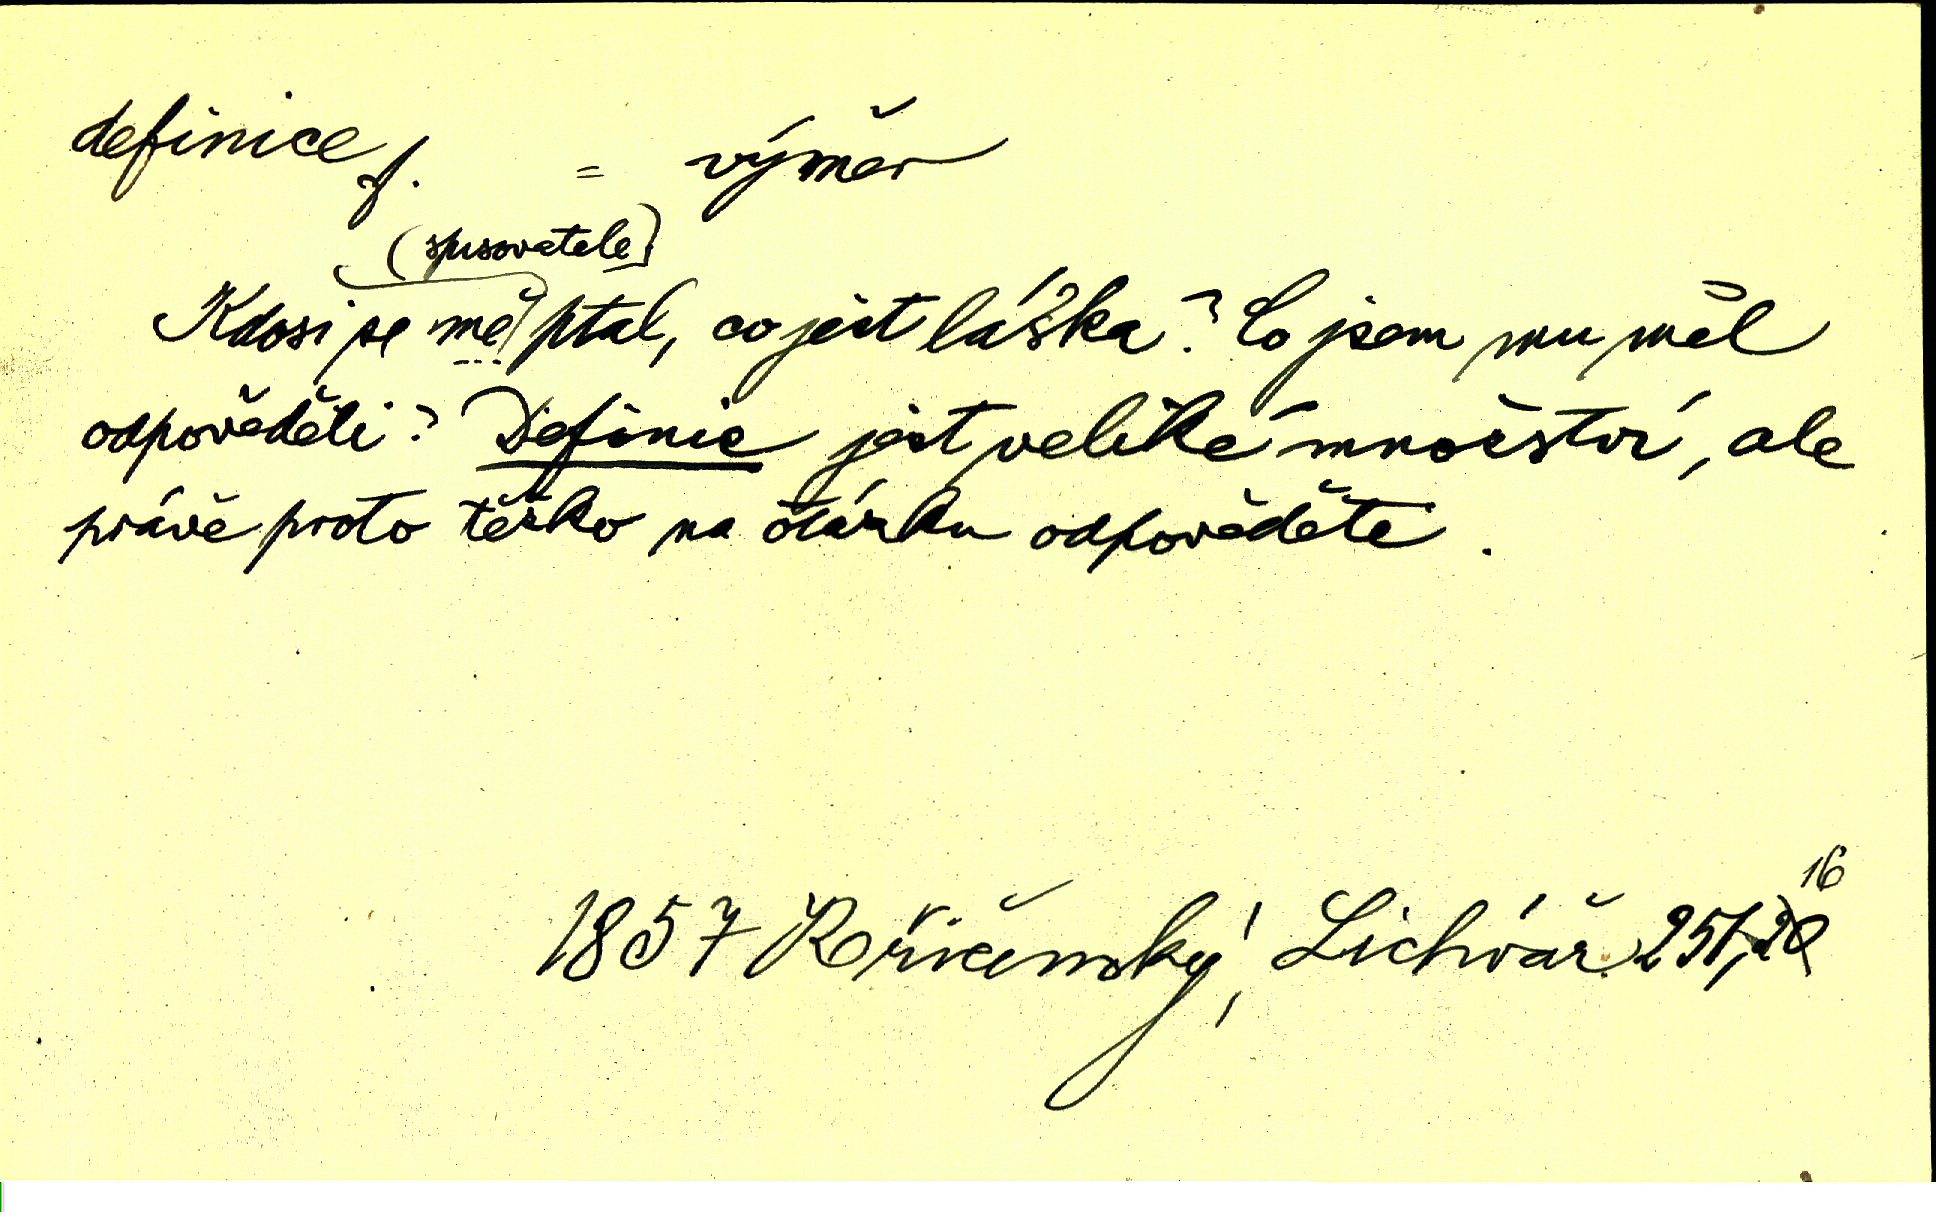 definice f. = výměr
(spisovatele)
Kdosi se mě ptal, co jest láska? Co jsem mu měl
odpověděti? Definic jest veliké množství, ale
právě proto těžko na otázku odpověděti.
16
1857 Kořičenský, Lichvář 251,20